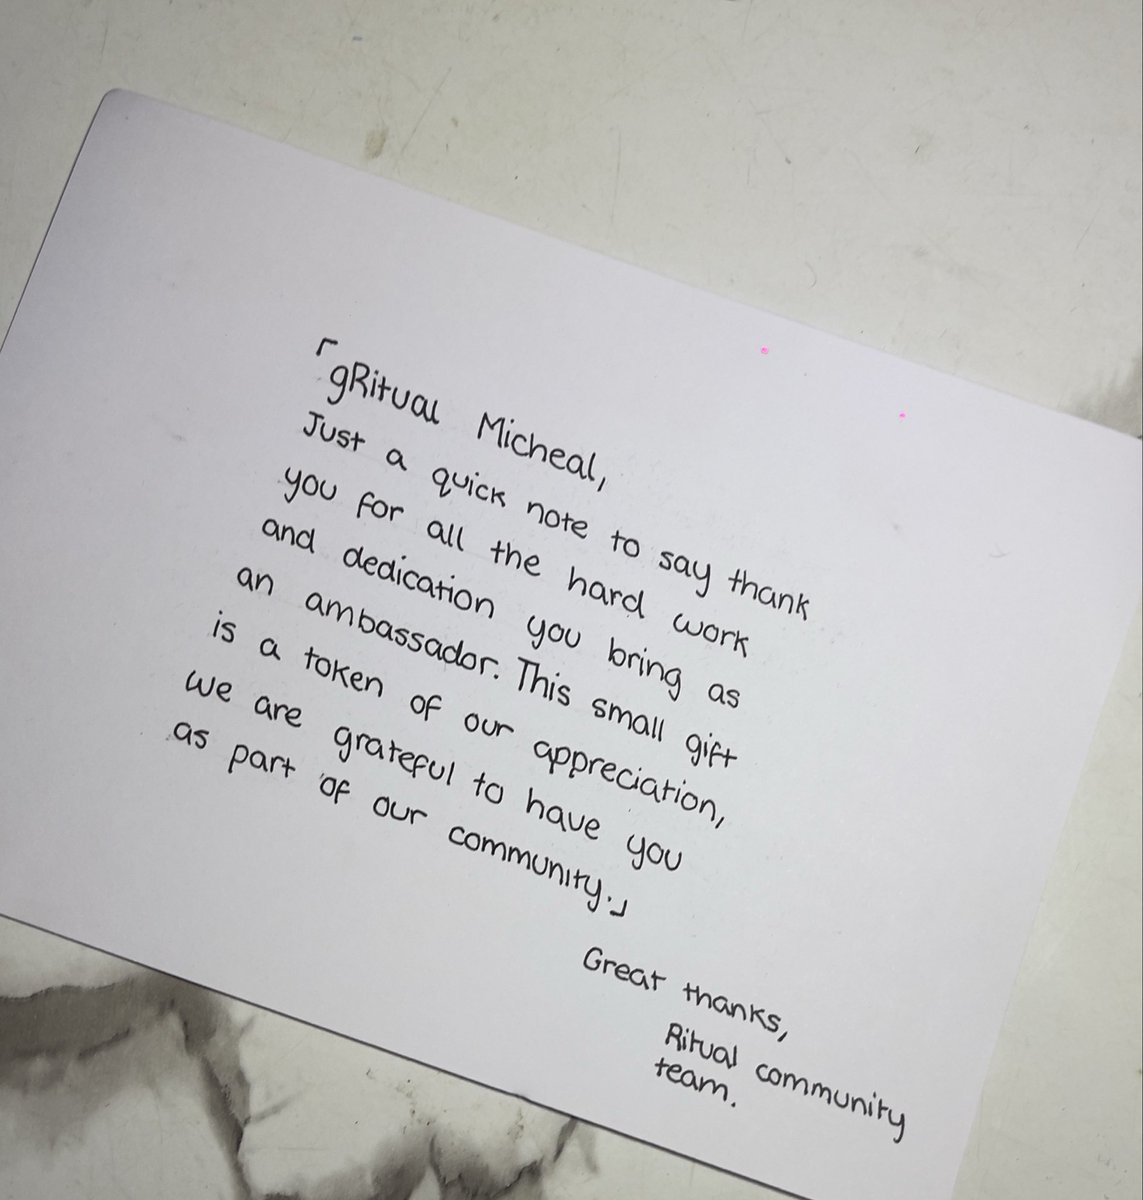 「gRitual Micheal,
Just a quick note to say thank
you for all the hard work
and dedication you bring as
an ambassador. This small gift
is a token of our appreciation,
we are grateful to have you
as part of our community.」
Great thanks,
Ritual community
team.